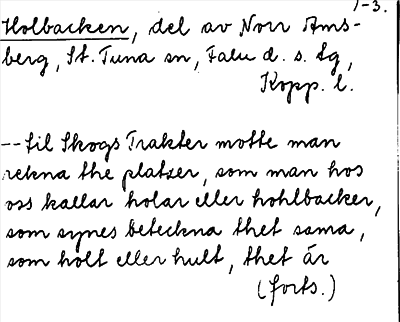 1-3.
Holbacken, del av Norr Ams-
berg, St. Tuna sn, Falu d. s. tg,
Kopp. l.
--til Skogs Trakter motte man
rekna the platser, som man hos
oss kallar holar eller hohlbacker,
som synes beteckna thet sama,
som holt eller hult, thet är
(forts.)